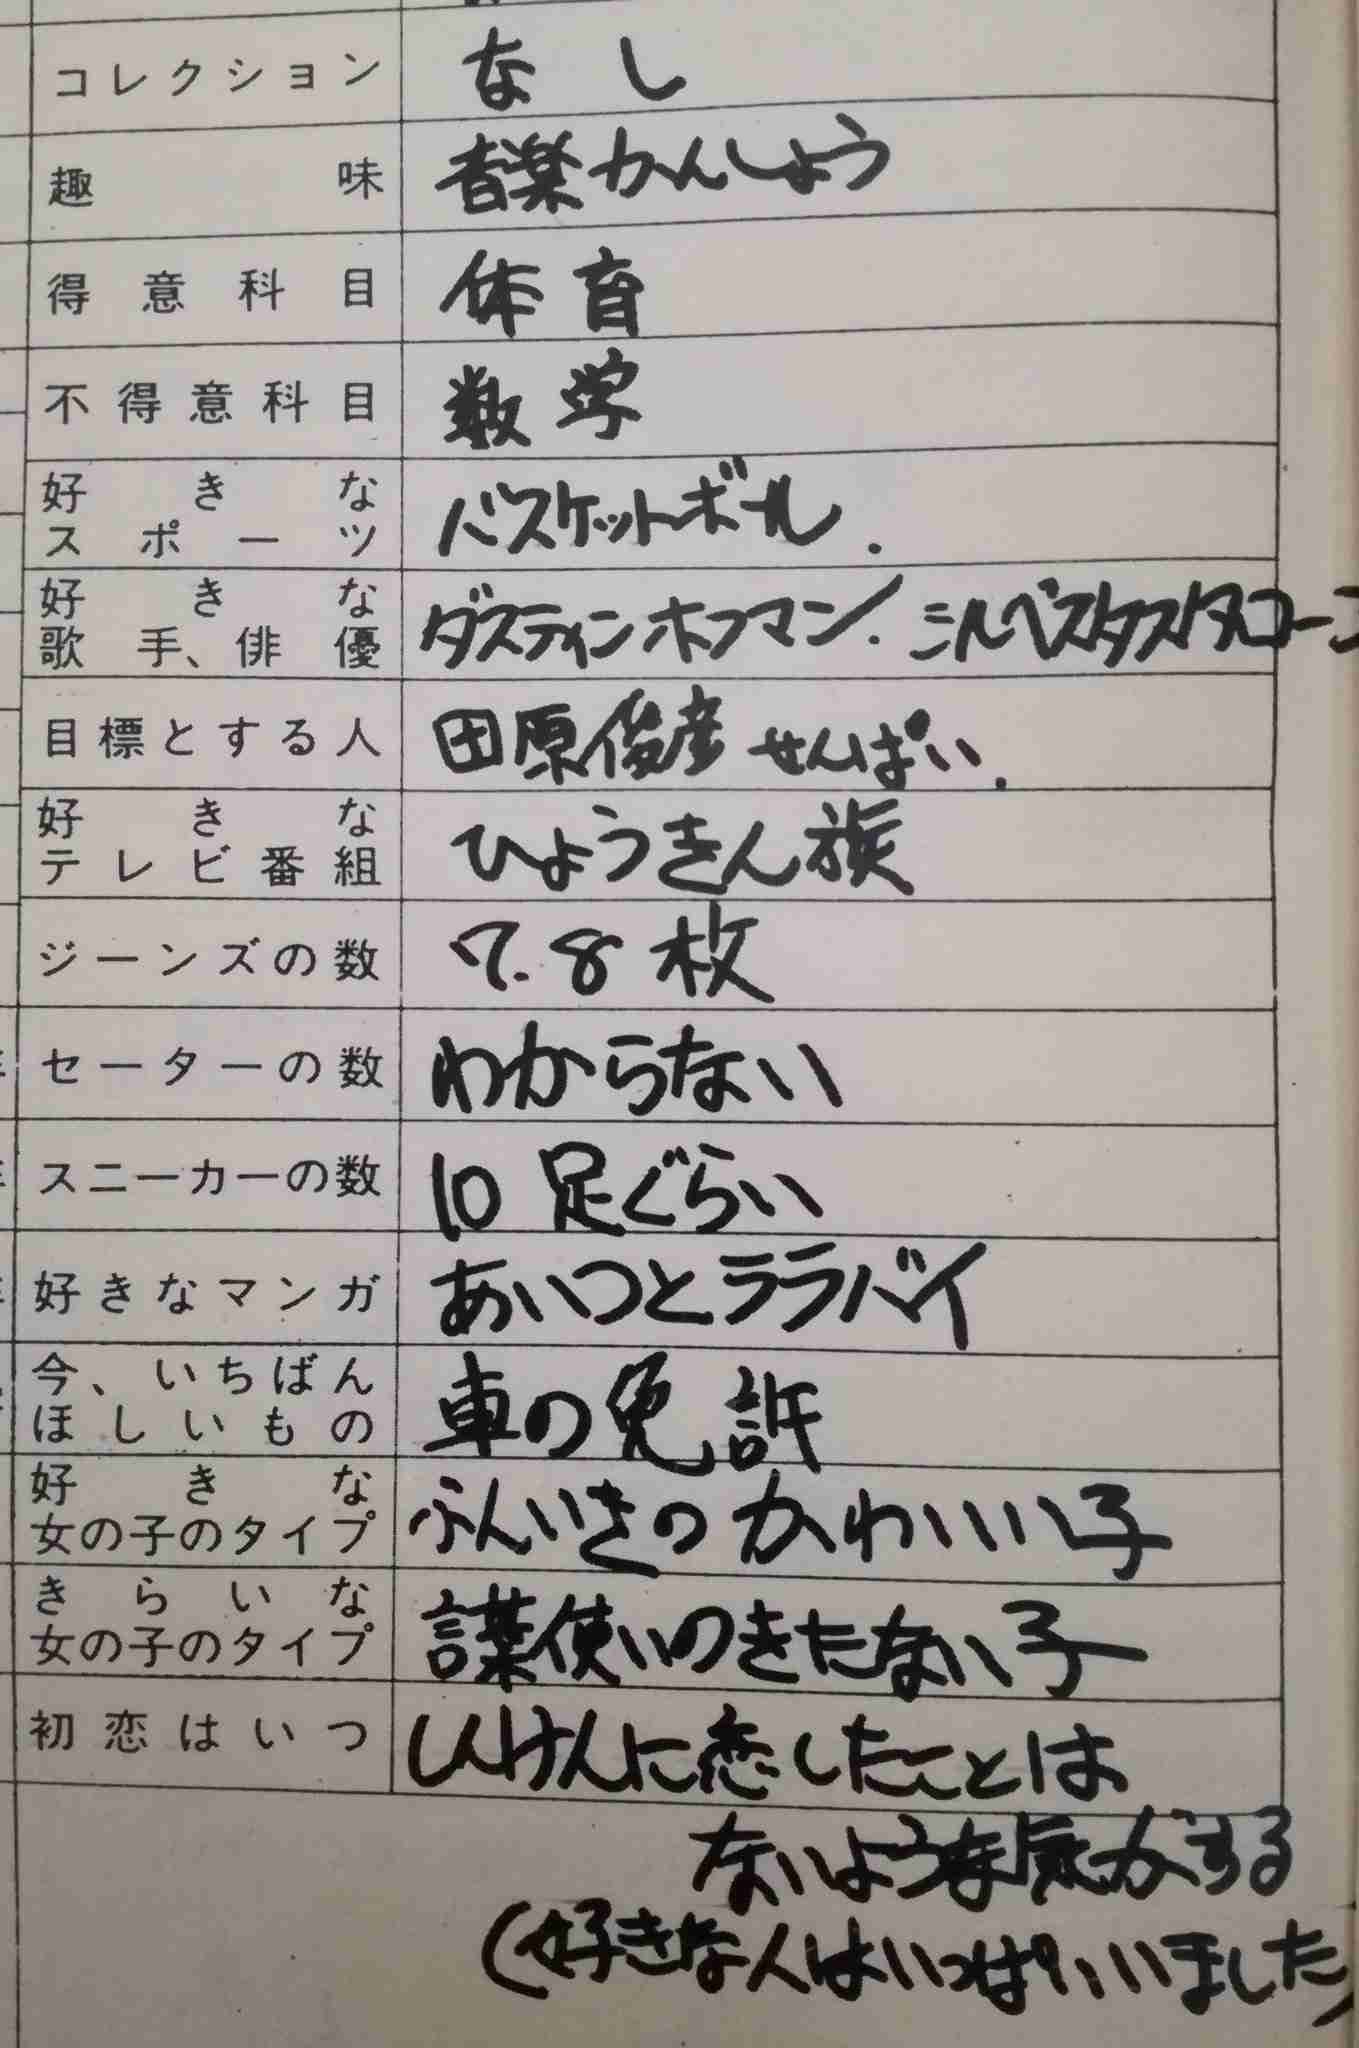 コレクション なし
趣味 音楽かんしょう
得意科目 体育
不得意科目 数学
好きな
スポーツ バスケットボール.
好きな
歌手、俳優 ダスティンホフマン/. シルベスタスタローン
目標とする人 田原俊彦せんぱい.
好きな
テレビ番組 ひょうきん族
ジーンズの数 7.8枚
セーターの数 わからない
スニーカーの数 10足ぐらい
好きなマンガ あいつとララバイ
今、いちばん
ほしいもの 車の免許
好きな
女の子のタイプ ふんいきのかわいい子
きらいな
女の子のタイプ 言葉使いのきたない子
初恋はいつ しんけんに恋したことは
ないような気がする
(好きな人はいっぱいいました)